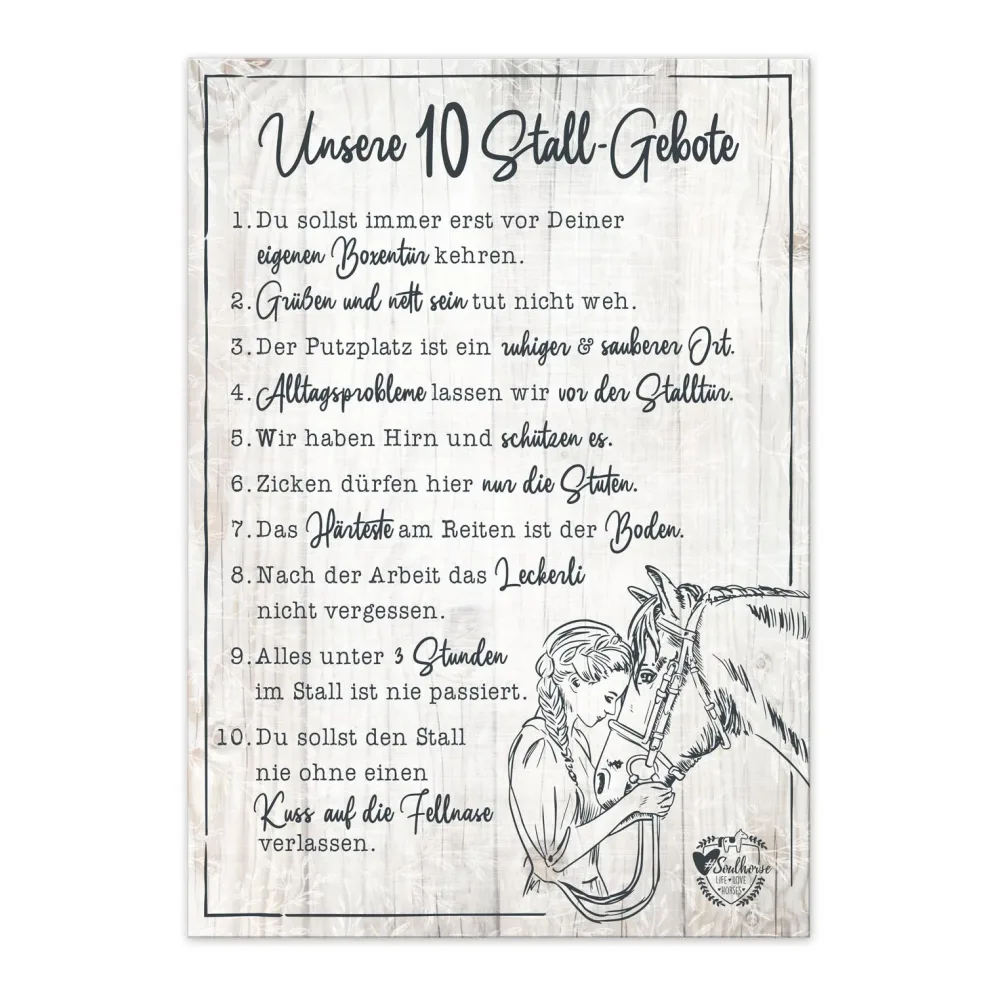 Unsere 10 Stall-Gebote
1. Du sollst immer erst vor Deiner
eigenen Boxentür kehren.
2. Grüßen und nett sein tut nicht weh.
3. Der Putzplatz ist ein ruhiger & sauberer Ort.
4. Alltagsprobleme lassen wir vor der Stalltür.
5. Wir haben Hirn und schützen es.
6. Zicken dürfen hier nur die Stuten.
7. Das Härteste am Reiten ist der Boden.
8. Nach der Arbeit das Leckerli
nicht vergessen.
9. Alles unter 3 Stunden
im Stall ist nie passiert.
10. Du sollst den Stall
nie ohne einen
Kuss auf die Fellnase
verlassen.
#Soulhorse
LIFE ♥ LOVE
♥ HORSES ♥